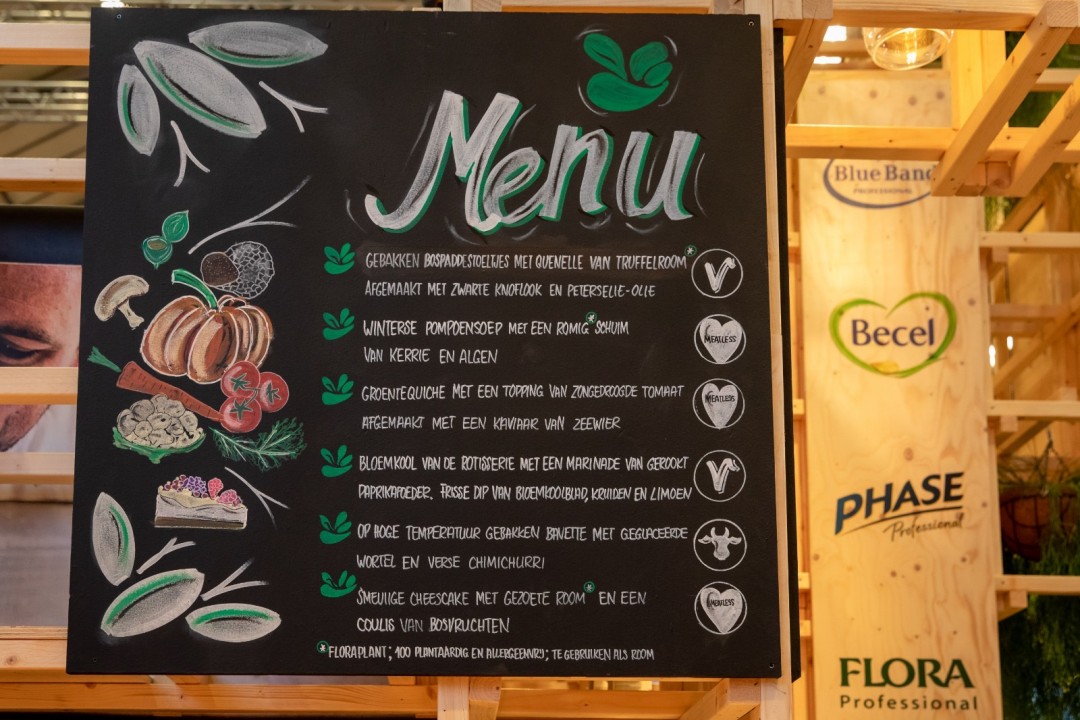 Menu
GEBAKKEN BOSPADDESTOELTJES MET QUENELLE VAN TRUFFELROOM*
AFGEMAAKT MET ZWARTE KNOFLOOK EN PETERSELIE-OLIE
V
WINTERSE POMPOENSOEP MET EEN ROMIG* SCHUIM
VAN KERRIE EN ALGEN
MEATLESS
GROENTEQUICHE MET EEN TOPPING VAN ZONGEDROOGDE TOMAAT
AFGEMAAKT MET EEN KAVIAAR VAN ZEEWIER
MEATLESS
BLOEMKOOL VAN DE ROTISSERIE MET EEN MARINADE VAN GEROOKT
PAPRIKAPOEDER. FRISSE DIP VAN BLOEMKOOLBLAD, KRUIDEN EN LIMOEN
V
OP HOGE TEMPERATUUR GEBAKKEN BAVETTE MET GEGLACEERDE
WORTEL EN VERSE CHIMICHURRI
SMEUIIGE CHEESCAKE MET GEZOETE ROOM* EN EEN
COULIS VAN BOSVRUCHTEN
MEATLESS
*FLORAPLANT; 100 PLANTAARDIG EN ALLERGEENVRIJ; TE GEBRUIKEN ALS ROOM
Blue Band
PROFESSIONAL
Becel
PHASE
Professional
FLORA
Professional